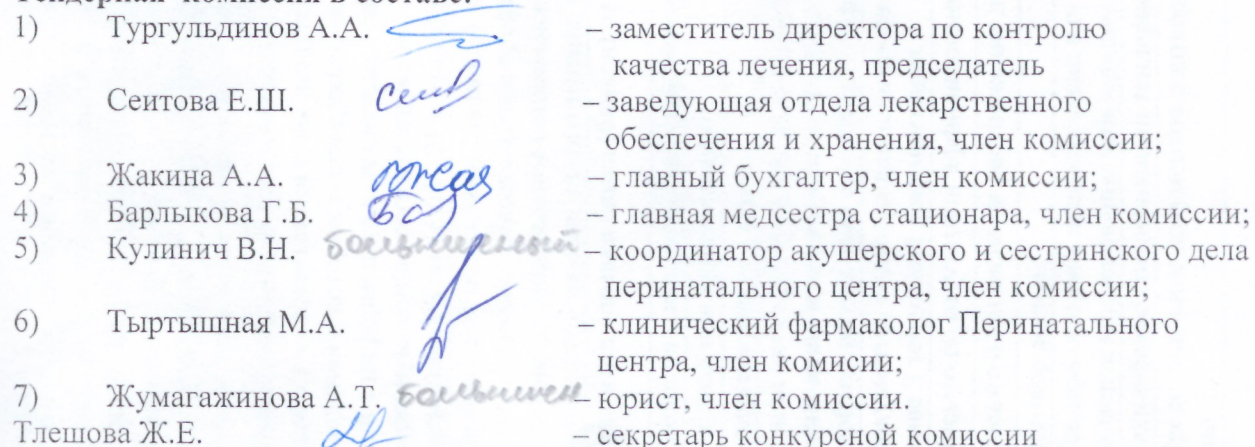 Тендерная комиссия в составе:
1) Тургульдинов А.А. – заместитель директора по контролю
качества лечения, председатель
2) Сеитова Е.Ш. – заведующая отдела лекарственного
обеспечения и хранения, член комиссии;
3) Жакина А.А. – главный бухгалтер, член комиссии;
4) Барлыкова Г.Б. – главная медсестра стационара, член комиссии;
5) Кулинич В.Н. – координатор акушерского и сестринского дела
перинатального центра, член комиссии;
6) Тыртышная М.А. – клинический фармаколог Перинатального
центра, член комисии;
7) Жумагажинова А.Т. – юрист, член комиссии.
Тлешова Ж.Е. – секретарь конкурсной комиссии